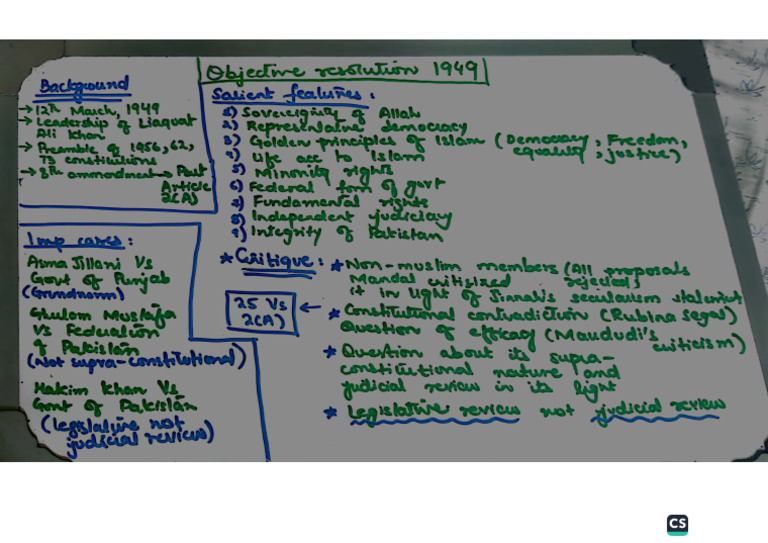 Objective resolution 1949
Background
→ 12th March, 1949
→ Leadership of Liaquat
Ali Khan
→ Preamble of 1956, 62,
73 constitutions
→ 8th ammendment → Part
Article
2(A)
Salient features:
1) Sovereignity of Allah
2) Representative democracy
3) Golden principles of Islam (Democracy, Freedom,
equality, justice)
4) Life acc to Islam
5) Minority rights
6) Federal form of govt
7) Fundamental rights
8) Independent judiciay
9) Integrity of Pakistan
Imp cases:
Asma Jillani Vs
Govt of Punjab
(Grundnorm)
Ghulam Mustafa
Vs Federation
of Pakistan
(Not supra-constitutional)
Hakim Khan Vs
Govt of Pakistan
(legislature not
judicial review)
* Critique:
* Non-muslim members (All proposals
rejected)
Mandal critisized
it in light of Jinnah's secularism statement
25 Vs
2(A)
←
* Constitutional contradiction (Rubina Segal)
Question of efficacy (Maududi's
criticism)
* Question about its supra-
constitutional nature and
judicial review in its light
* Legislative review not judicial review
CS